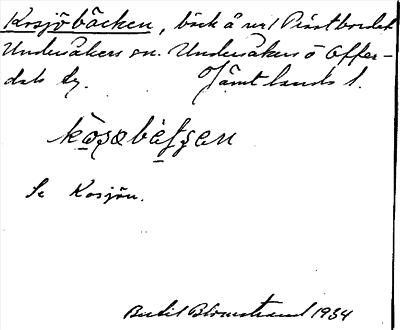 Kosjöbäcken, bäck å nr 1 Prästbordet
Undersåkers sn. Undersåkers o Offer-
dals tg. Jämtlands l.
Se Kosjön.
Bertil Blomstrand 1934